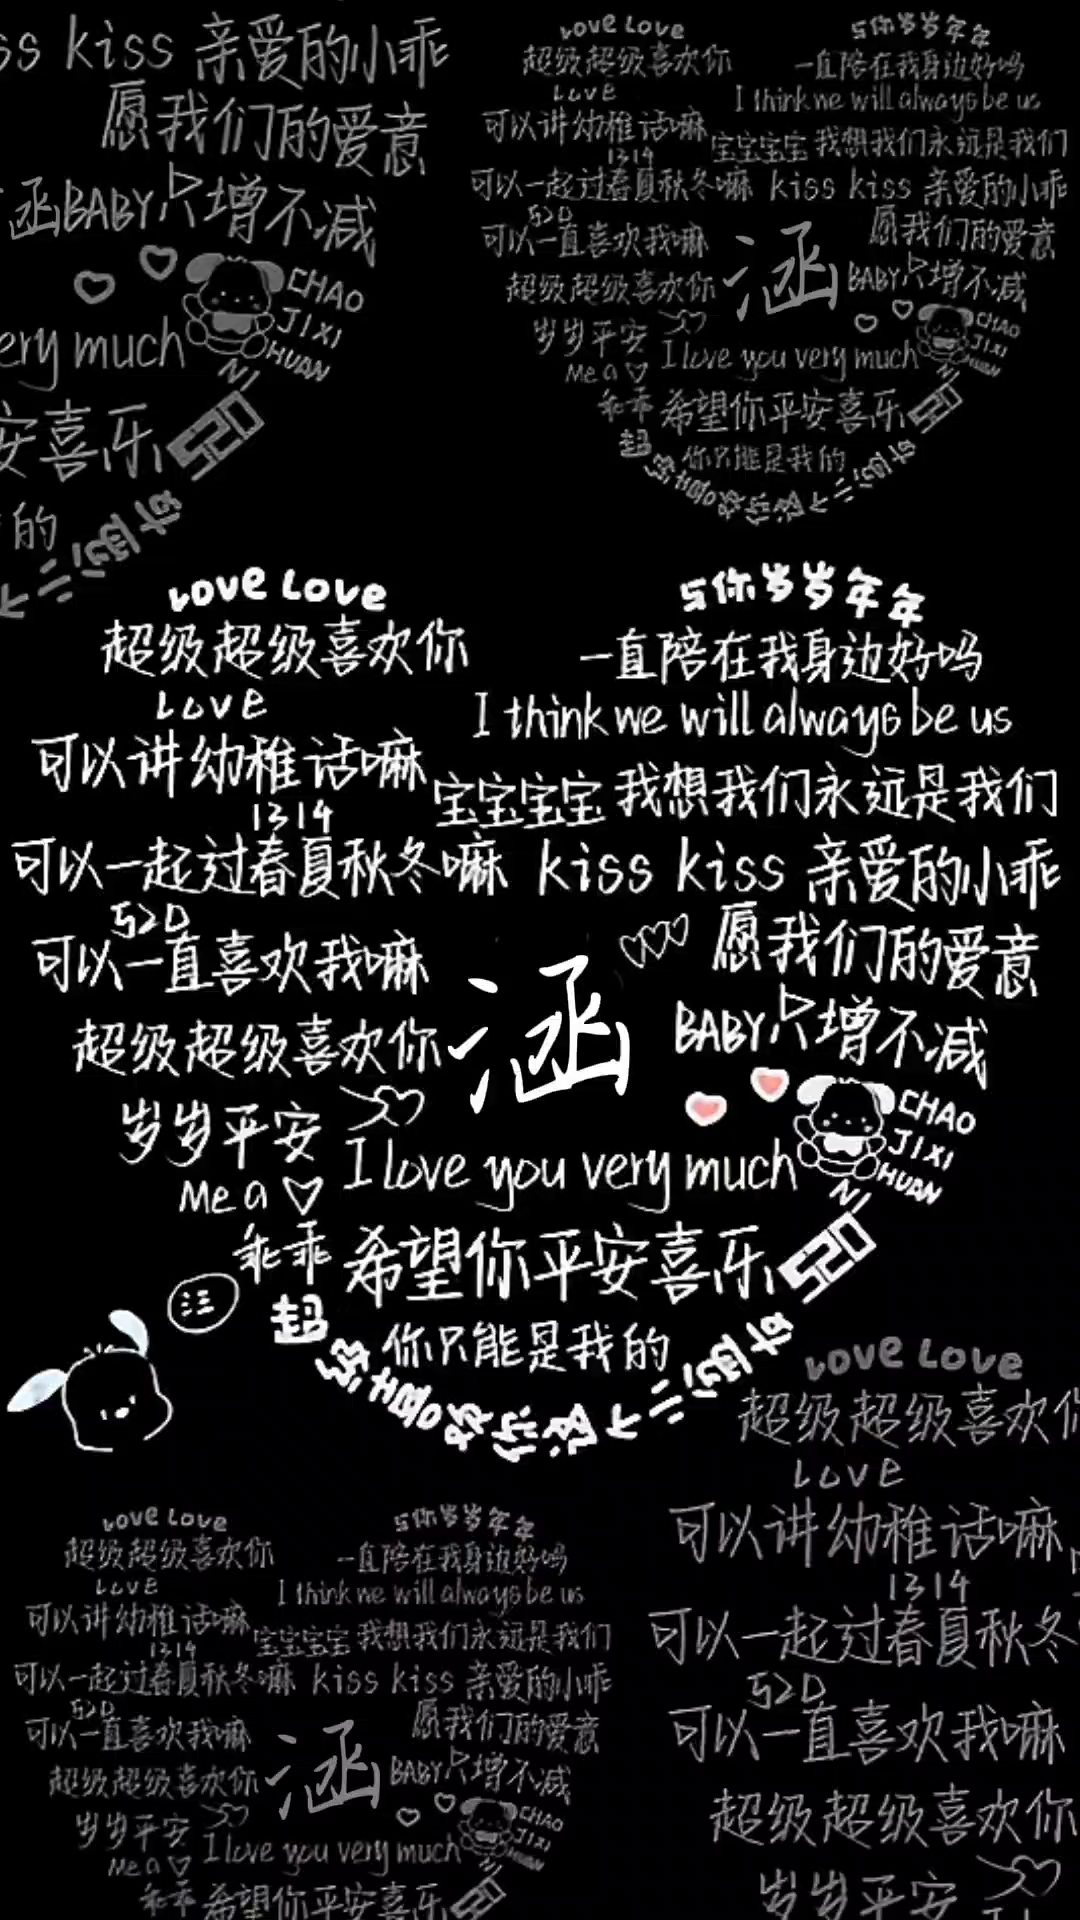 ss kiss 亲爱的小乖
愿我们的爱意
涵BABY只增不减
CHAO
JIXI
HUAN
NI
ery much
安喜乐
520
的
Love Love
超级超级喜欢你
Love
可以讲幼稚话嘛
1314
可以一起过春夏秋冬嘛
520
可以一直喜欢我嘛
超级超级喜欢你
岁岁平安
Me a
乖乖
与你岁岁年年
一直陪在我身边好吗
I think we will always be us
宝宝宝宝 我想我们永远是我们
kiss kiss 亲爱的小乖
愿我们的爱意
涵
BABY只增不减
CHAO
JIXI
HUAN
NI
I love you very much
希望你平安喜乐
520
你只能是我的
Love Love
与你岁岁年年
超级超级喜欢你
一直陪在我身边好吗
Love
I think we will always be us
可以讲幼稚话嘛
宝宝宝宝 我想我们永远是我们
1314
可以一起过春夏秋冬嘛 kiss kiss 亲爱的小乖
520
可以一直喜欢我嘛
愿我们的爱意
涵
BABY只增不减
超级超级喜欢你
CHAO
JIXI
HUAN
NI
岁岁平安
I love you very much
Me a
乖乖 希望你平安喜乐
520
你只能是我的
汪
Love Love
超级超级喜欢你
Love
可以讲幼稚话嘛
1314
可以一起过春夏秋冬
520
可以一直喜欢我嘛
超级超级喜欢你
岁岁平安
Love Love
与你岁岁年年
超级超级喜欢你
一直陪在我身边好吗
Love
I think we will always be us
可以讲幼稚话嘛
宝宝宝宝 我想我们永远是我们
1314
可以一起过春夏秋冬嘛 kiss kiss 亲爱的小乖
520
可以一直喜欢我嘛
愿我们的爱意
涵
BABY只增不减
超级超级喜欢你
CHAO
JIXI
HUAN
岁岁平安
I love you very much
Me a
乖乖 希望你平安喜乐